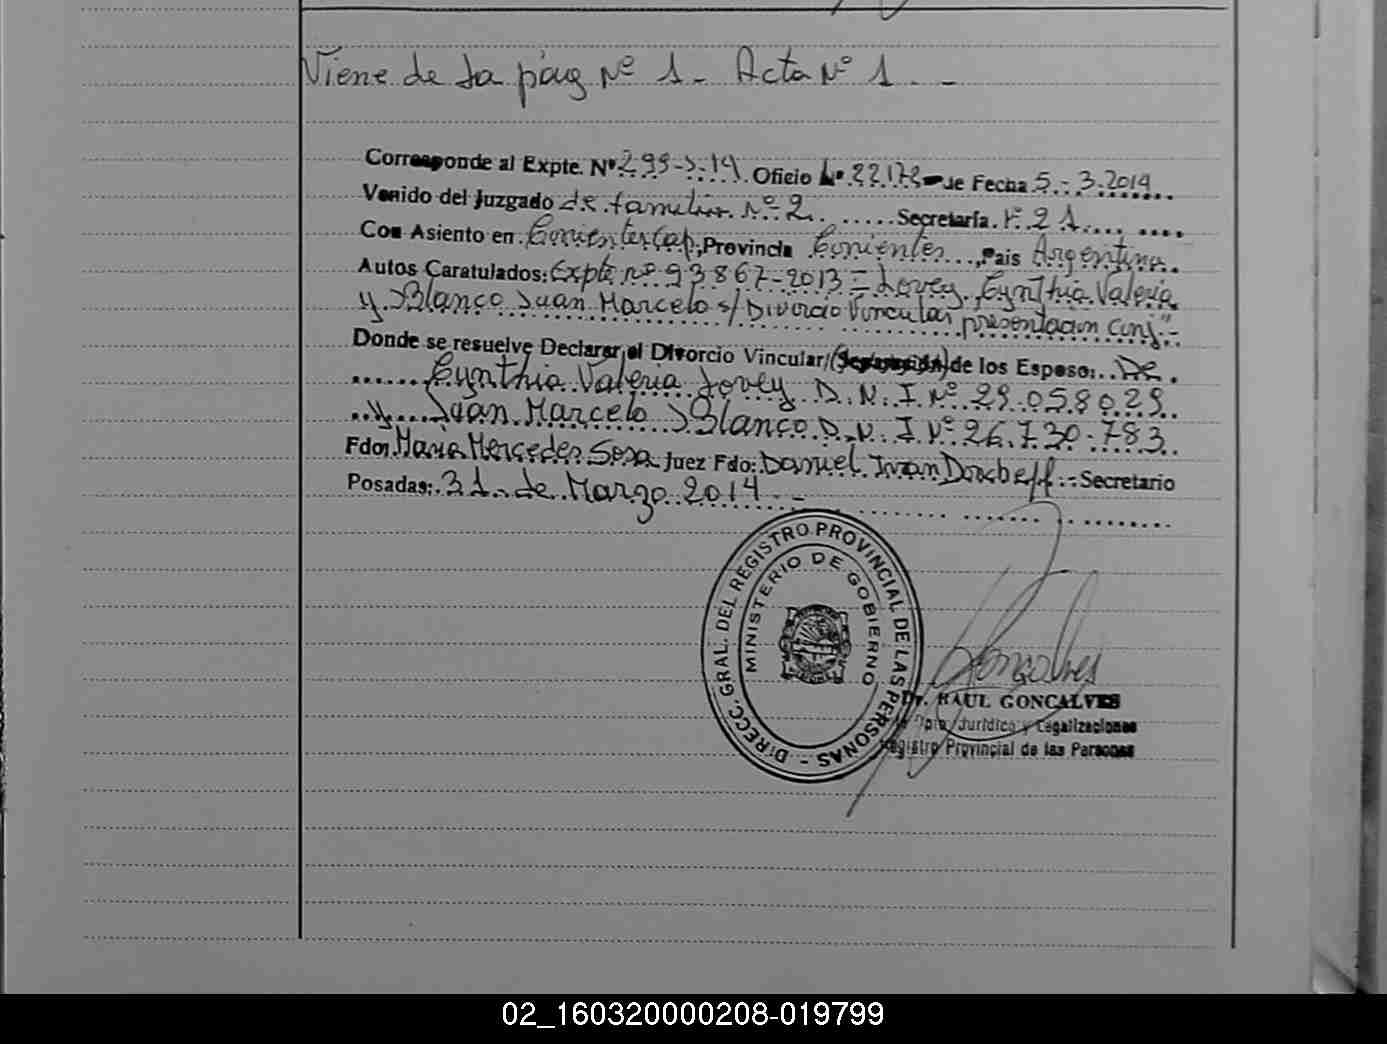 Viene de la pág Nº 1 - Acta Nº 1 . -
Corresponde al Expte. Nº 299-J-14 Oficio Nº 22172 de Fecha 5 - 3.2014
Venido del Juzgado de familia Nº 2 Secretaría Nº 21
Con Asiento en Corrientes Cap, Provincia Corrientes, Pais Argentina
Autos Caratulados: Expte nº 93867-2013 = Jovey Cynthia Valeria
y Blanco Juan Marcelo s/ Divorcio Vincular presentacion conj" -
Donde se resuelve Declarar el Divorcio Vincular/ de los Esposo: De
Cynthia Valeria Jovey D. N. I. Nº 29.058029
y Juan Marcelo Blanco D. N. I. Nº 26.730.783
Fdo: Maria Mercedes Sosa Juez Fdo: Daniel Ivan Secretario
Posadas: 31 de Marzo 2014 -
DIRECC. GRAL. DEL REGISTRO PROVINCIAL DE LAS PERSONAS -
MINISTERIO DE GOBIERNO
Goncalves
Dr. RAUL GONCALVES
Dpto. Jurídico y Legalizaciones
Registro Provincial de las Personas
02_160320000208-019799